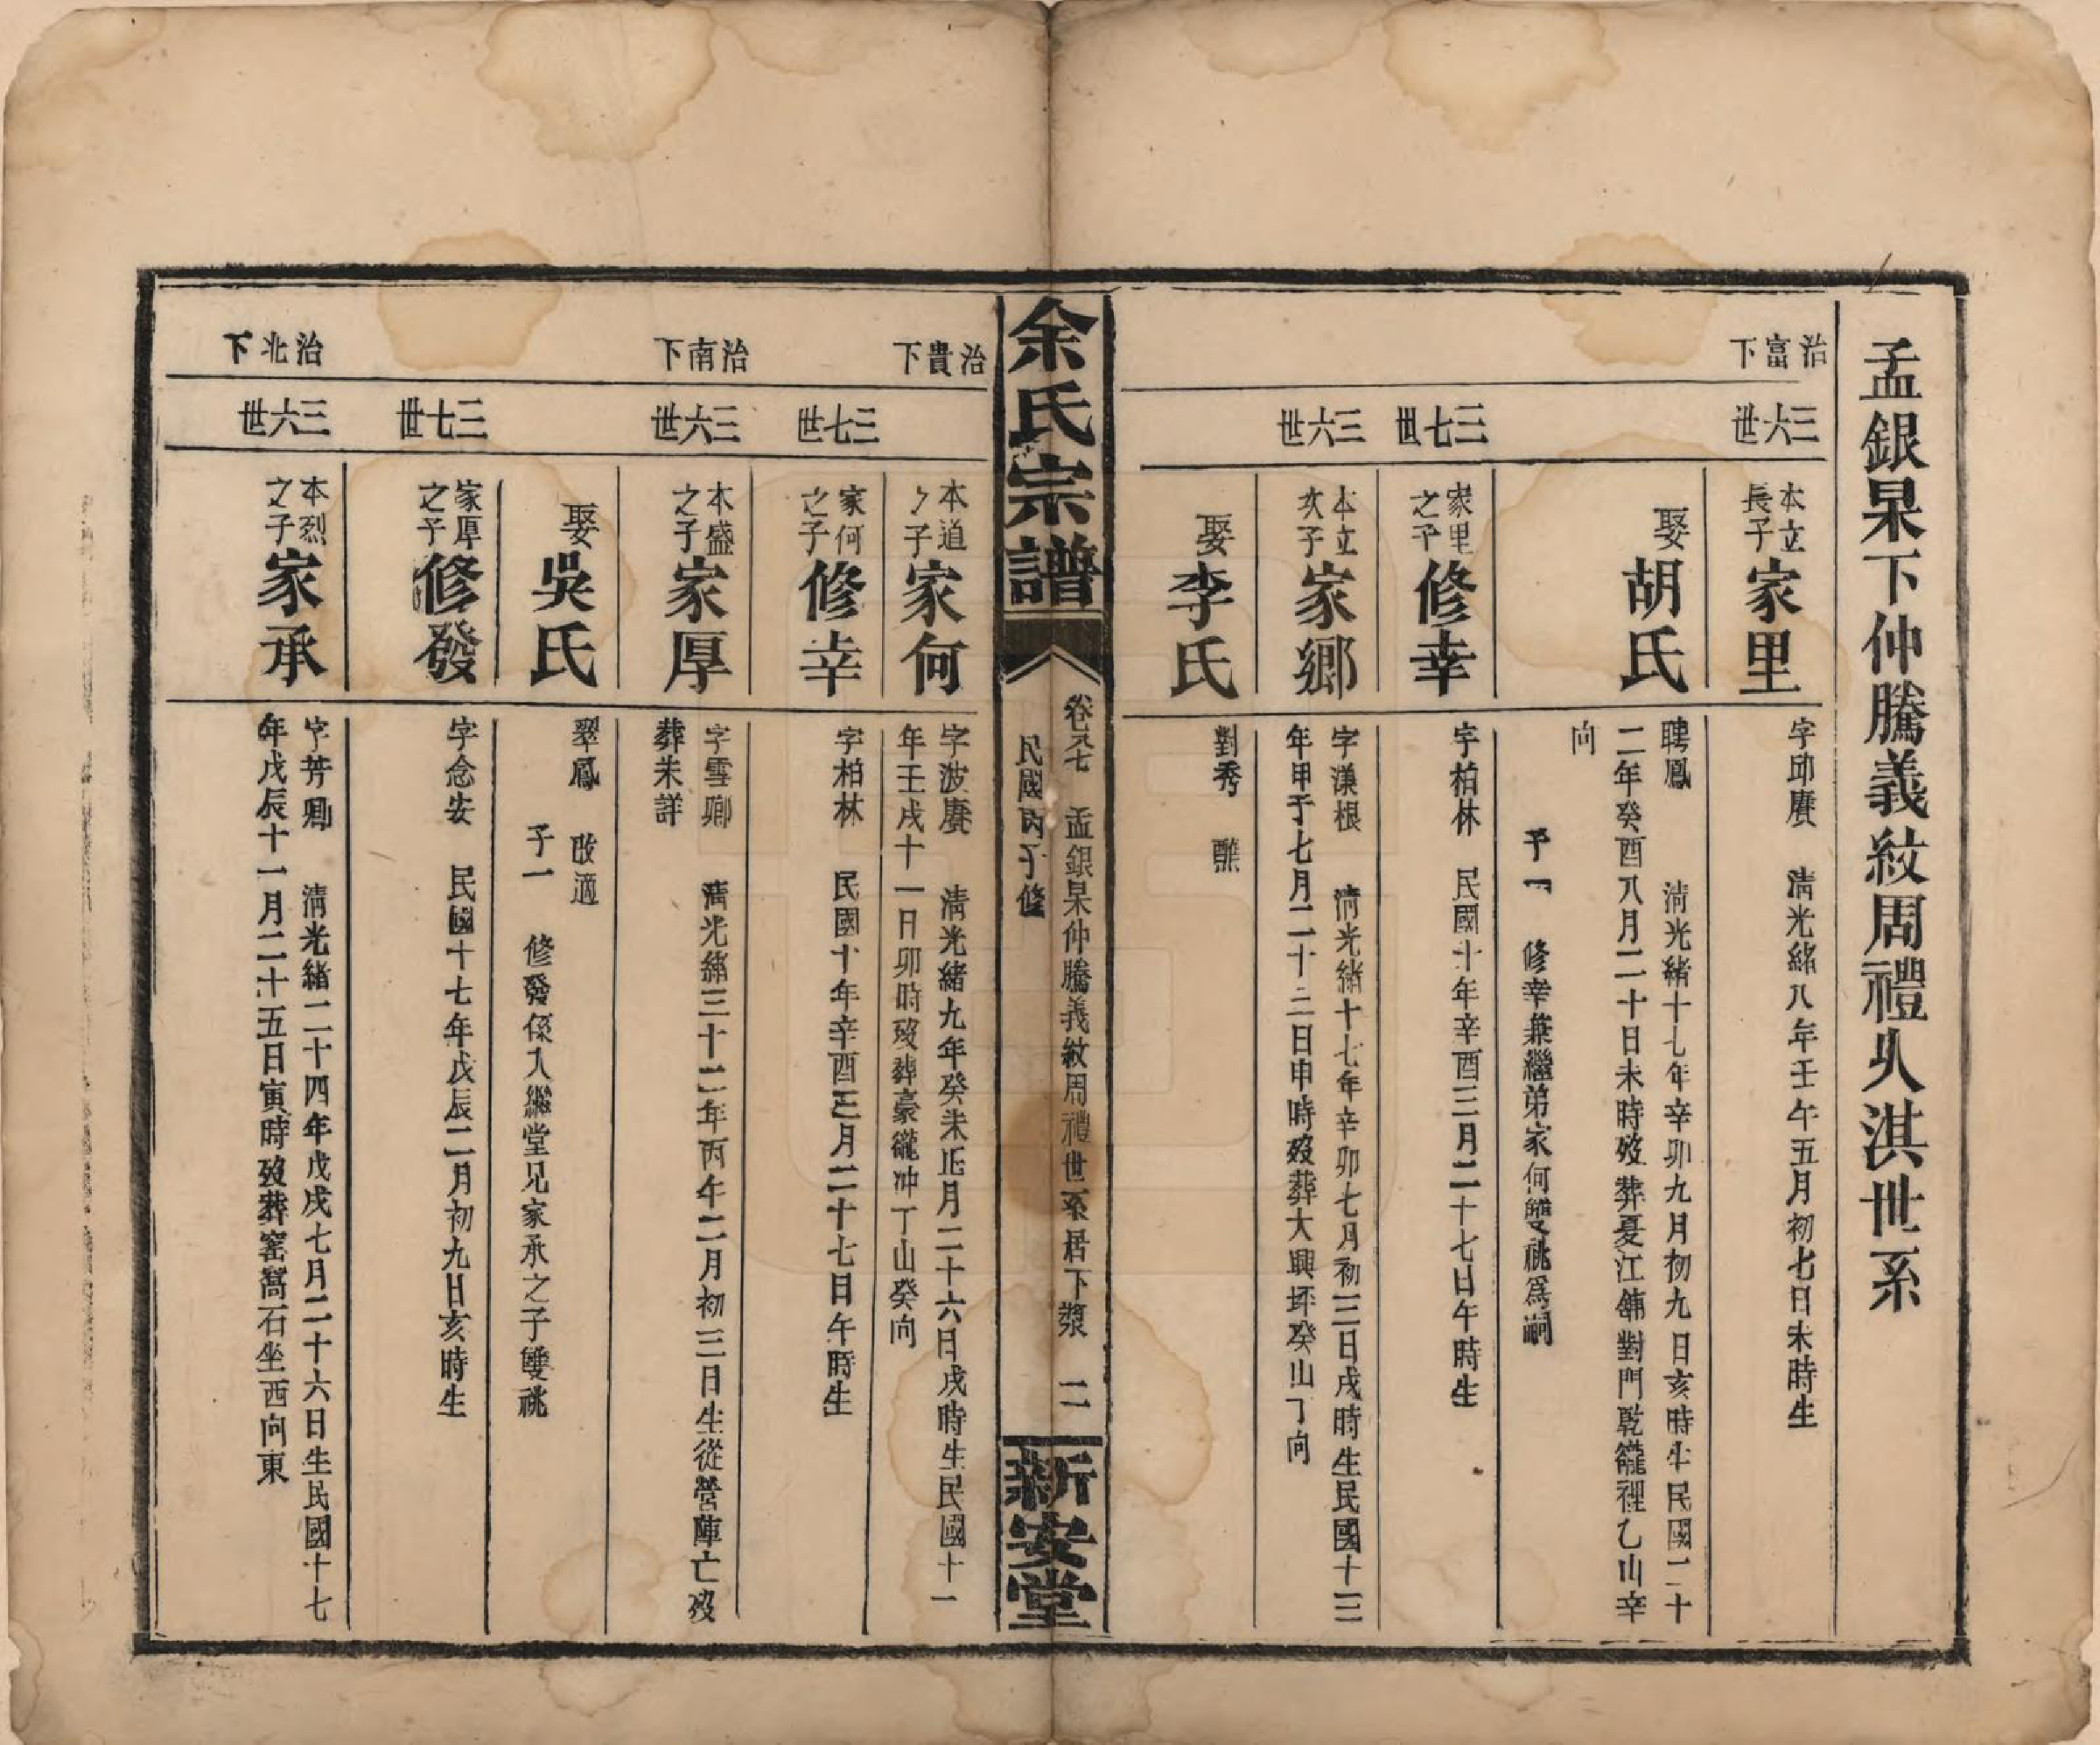 孟銀杲下仲騰義紋周禮火淇世系
治富下
三六世
本立長子
家里
字邱賡　清光緒八年壬午五月初七日未時生
娶
胡氏
聘鳳　清光緒十七年辛卯九月初九日亥時生民國二十
二年癸酉八月二十日未時歿葬憂江錦對門乾龍裡乙山辛
向
子一　修幸兼繼弟家何雙祧為嗣
三七世
家里之子
修幸
字柏林　民國十年辛酉三月二十七日午時生
三六世
本立次子
家鄉
字漢根　清光緒十七年辛卯七月初三日戌時生民國十三
年甲子七月二十三日申時歿葬大興坪癸山丁向
娶
李氏
對秀　醮
余氏宗譜
卷之七　孟銀杲仲騰義紋周禮世系居下漿　二
民國丙子修
新安堂
治貴下
本道之子
家何
字波賡　清光緒九年癸未正月二十六日戌時生民國十一
年壬戌十一日卯時歿葬豪巃冲丁山癸向
三七世
家何之子
修幸
字柏林　民國十年辛酉三月二十七日午時生
治南下
三六世
本盛之子
家厚
字雪卿　清光緒三十二年丙午二月初三日生從營陣亡歿
葬未詳
娶
吳氏
翠鳳　改適
子一　修發係入繼堂兄家承之子雙祧
三七世
家厚之子
修發
字念安　民國十七年戊辰二月初九日亥時生
治北下
三六世
本烈之子
家承
字芳卿　清光緒二十四年戊戌七月二十六日生民國十七
年戊辰十一月二十五日寅時歿葬窰窩石坐西向東